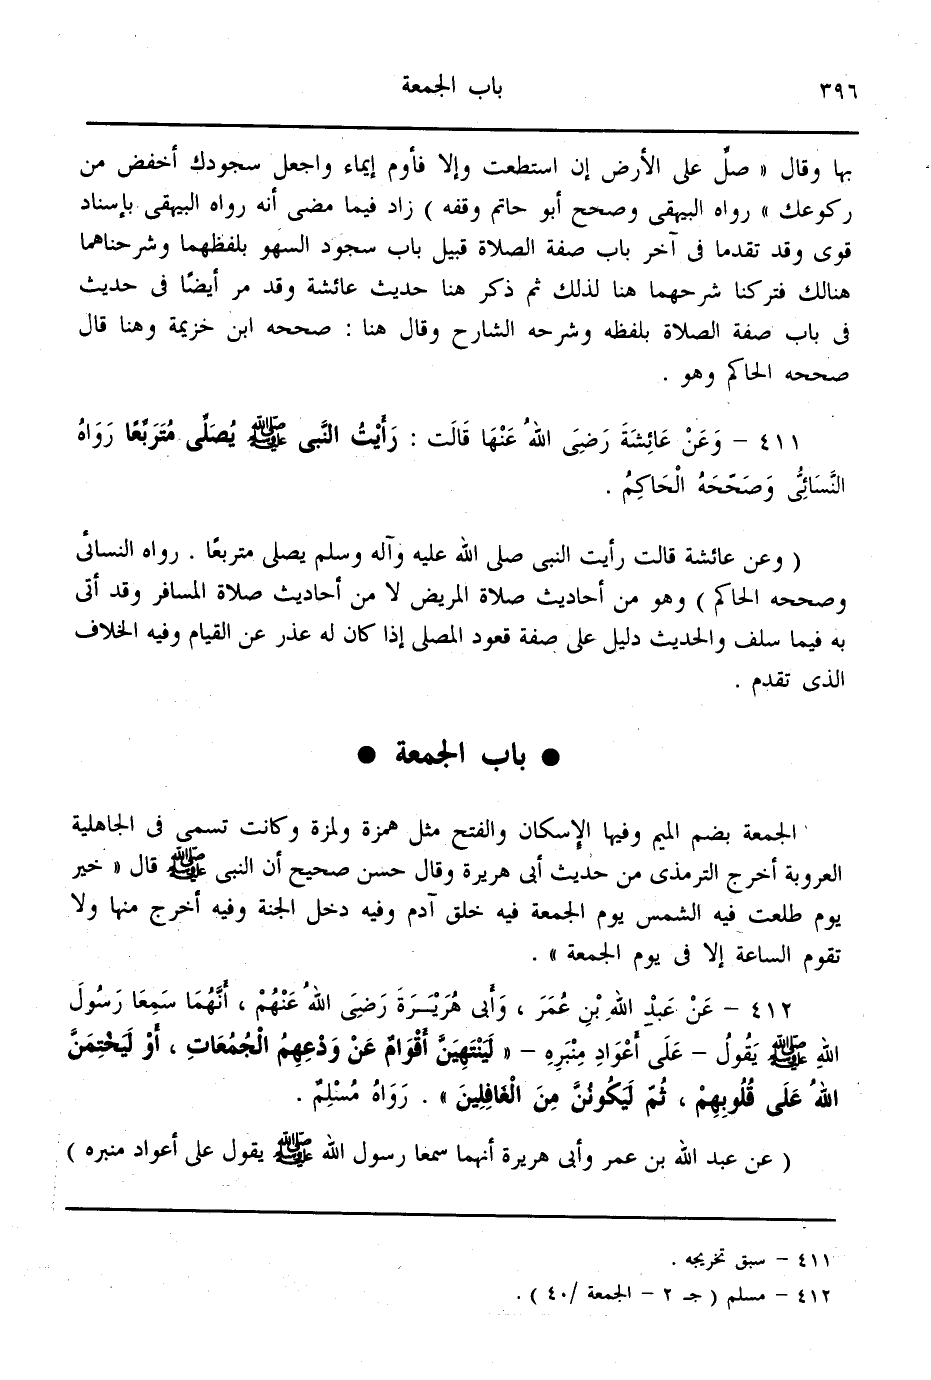 ٣٩٦
باب الجمعة
بها وقال « صلِّ على الأرض إن استطعت وإلا فأوم إيماء واجعل سجودك أخفض من
ركوعك » رواه البيهقى وصحح أبو حاتم وقفه ) زاد فيما مضى أنه رواه البيهقى بإسناد
قوى وقد تقدما فى آخر باب صفة الصلاة قبيل باب سجود السهو بلفظهما وشرحناهما
هنالك فتركنا شرحهما هنا لذلك ثم ذكر هنا حديث عائشة وقد مر أيضًا فى حديث
فى باب صفة الصلاة بلفظه وشرحه الشارح وقال هنا : صححه ابن خزيمة وهنا قال
صححه الحاكم وهو .
٤١١ – وَعَنْ عَائِشَةَ رَضِىَ اللهُ عَنْهَا قَالَت : رَأَيْتُ النَّبى ﷺ يُصَلِّى مُتَرَبِّعًا رَوَاهُ
النَّسَائِىُّ وَصَحَّحَهُ الْحَاكِمُ .
( وعن عائشة قالت رأيت النبى صلى الله عليه وآله وسلم يصلى متربعًا . رواه النسائى
وصححه الحاكم ) وهو من أحاديث صلاة المريض لا من أحاديث صلاة المسافر وقد أتى
به فيما سلف والحديث دليل على صفة قعود المصلى إذا كان له عذر عن القيام وفيه الخلاف
الذى تقدم .
● باب الجمعة ●
الجمعة بضم الميم وفيها الإسكان والفتح مثل همزة ولمزة وكانت تسمى فى الجاهلية
العروبة أخرج الترمذى من حديث أبى هريرة وقال حسن صحيح أن النبى ﷺ قال « خير
يوم طلعت فيه الشمس يوم الجمعة فيه خلق آدم وفيه دخل الجنة وفيه أخرج منها ولا
تقوم الساعة إلا فى يوم الجمعة » .
٤١٢ – عَنْ عَبْدِ اللهِ بْنِ عُمَرَ ، وَأَبى هُرَيْرَةَ رَضِىَ اللهُ عَنْهُمْ ، أَنَّهُمَا سَمِعَا رَسُولَ
اللهِ ﷺ يَقُولُ – عَلَى أَعْوَادِ مِنْبَرِهِ – « لَيَنْتَهِيَنَّ أَقْوَامٌ عَنْ وَدْعِهِمُ الْجُمُعَاتِ ، أَوْ لَيَخْتِمَنَّ
اللهُ عَلَى قُلُوبِهِمْ ، ثُمَّ لَيَكُونُنَّ مِنَ الْغَافِلِينَ » . رَوَاهُ مُسْلِمٌ .
( عن عبد الله بن عمر وأبى هريرة أنهما سمعا رسول الله ﷺ يقول على أعواد منبره )
٤١١ – سبق تخريجه .
٤١٢ – مسلم ( جـ ٢ – الجمعة /٤٠ ) .